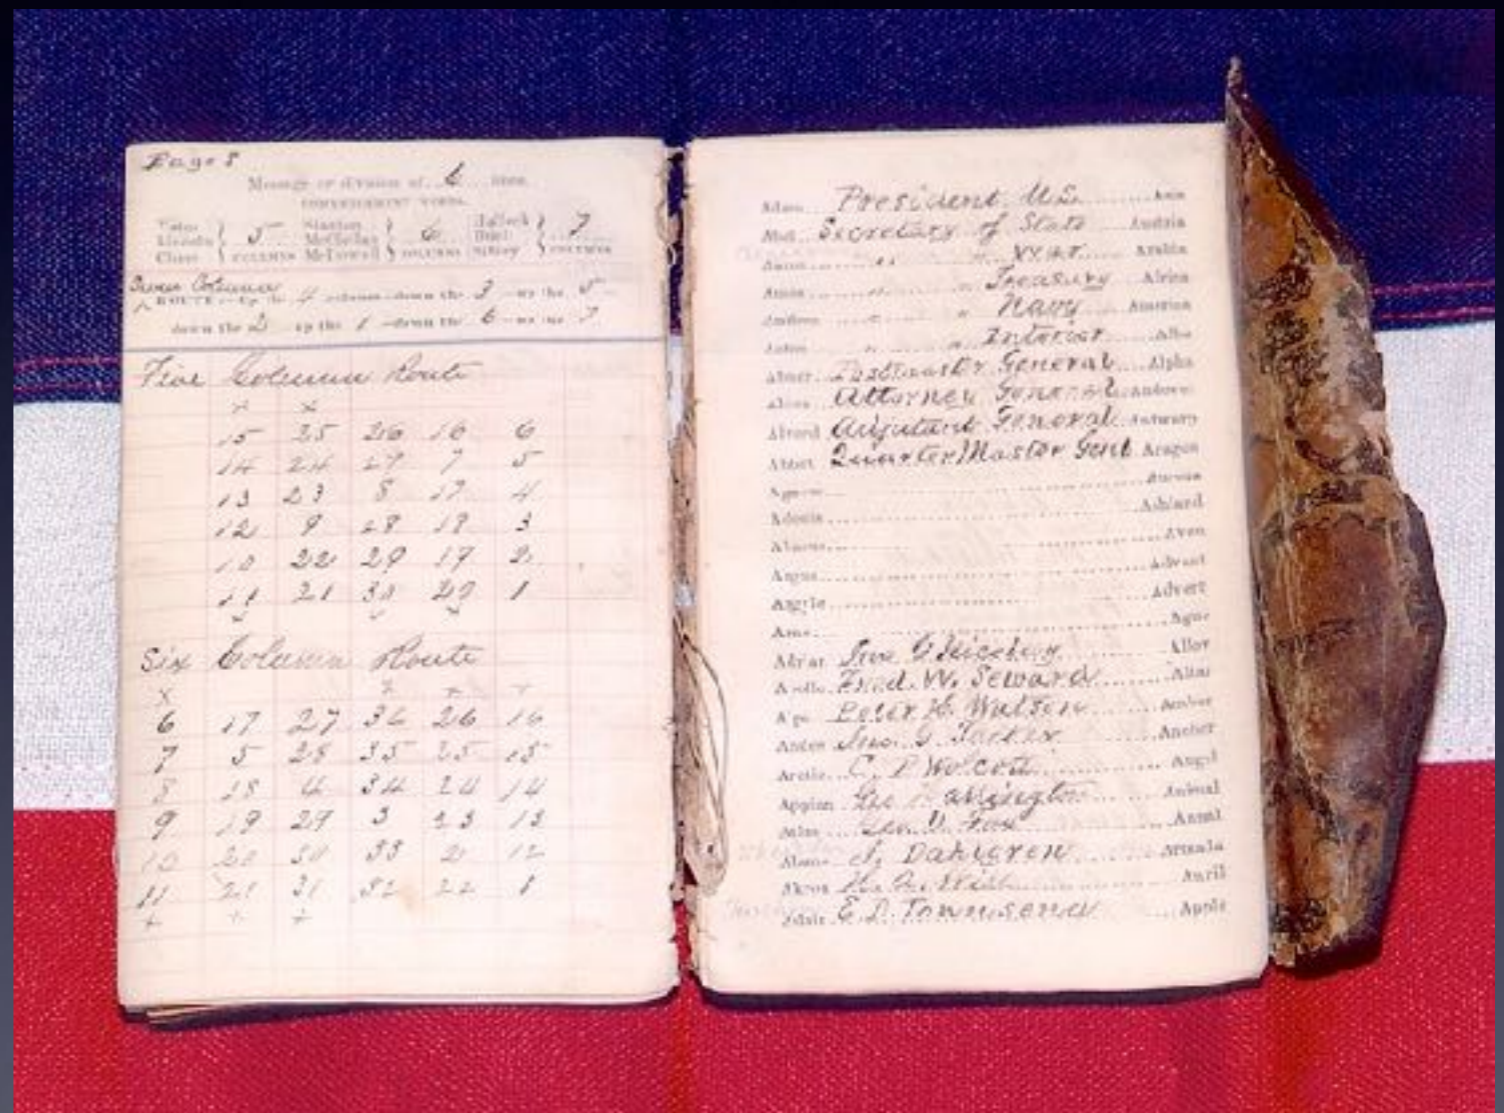 Page 8
Message or division of 6 lines.
COMMENCEMENT WORDS.
5 Stanton 6 Halleck 7
Lincoln McClellan
Chase COLUMNS McDowell COLUMNS Sibley COLUMNS
Seven Column
ROUTE—Up the 4 column—down the 3—up the 5—
down the 2 up the 1—down the 6—up the 7
Five Column Route
x x
15 25 26 16 6
14 24 27 7 5
13 23 8 17 4
12 9 28 18 3
10 22 29 19 2
11 21 30 20 1
Six Column Route
x x + +
6 17 27 36 26 16
7 5 28 35 25 15
8 18 4 34 24 14
9 19 29 3 23 13
10 20 30 33 2 12
11 21 31 32 22 1
+ + +
Adam President U.S. Asia
Secretary of State Austria
" " War Arabia
" " Treasury Africa
" " Navy America
" " Interior
Abner Postmaster General Alpha
Attorney General Andover
Alvord Adjutant General Antwerp
Abbot Quarter Master Genl Aragon
Adonis Ashland
Abacus Aven
Argus Advent
Argyle Advert
Ague
Adrian Alloy
Apollo Fred. W. Seward Altar
Peter H. Watson Amber
Jno. Anchor
Arctic C. P. Wolcott Angel
Appian Geo Harrington Animal
Fox Annal
Dahlgren
Akron April
Adair E. D. Townsend Apple